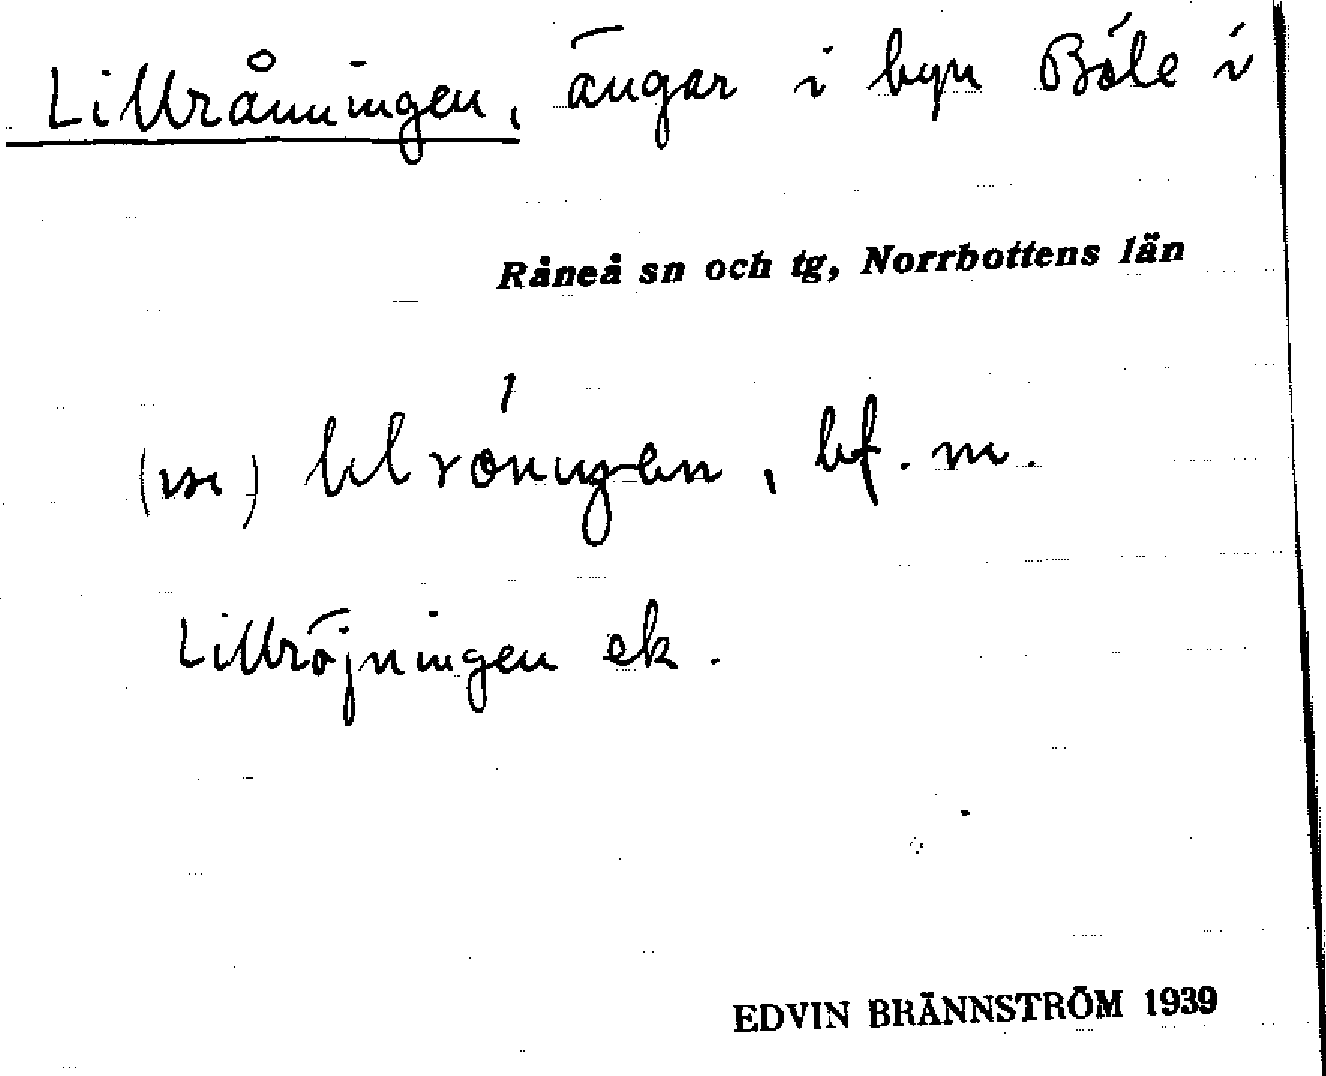 Lillrånningen, ängar i byn Böle i
Råneå sn och tg, Norrbottens län
bf. m.
Lillröjningen ek.
EDVIN BRÄNNSTRÖM 1939